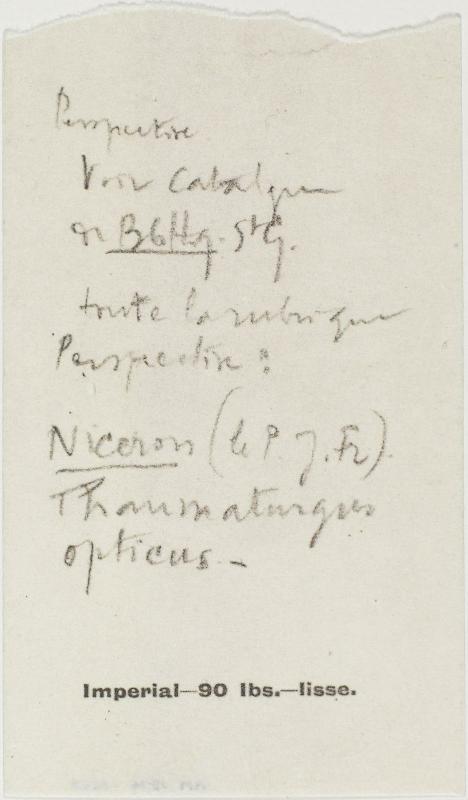 Perspective
Voir Catalogue
de Bblthq. St G.
toute la rubrique
Perspective :
Niceron (le P. J. Fr).
Thaumaturgus
opticus –
Imperial—90 lbs.—lisse.